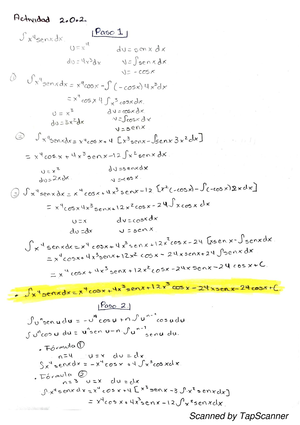 Actividad 2.0.2.
Paso 1
∫x⁴senxdx
u=x⁴ dv=senxdx
du=4x³dx v=∫senxdx
v=-cosx
① ∫x⁴senxdx=x⁴cosx-∫(-cosx)4x³dx
=x⁴cosx4∫x³cosxdx
u=x³ dv=cosxdx
du=3x²dx v=∫cosxdx
v=senx
② ∫x⁴senxdx=x⁴cosx+4[x³senx-∫senx3x²dx]
=x⁴cosx+4x³senx-12∫x²senxdx
u=x² dv=senxdx
du=2xdx
③ ∫x⁴senxdx=x⁴cosx+4x³senx-12[x²(-cosx)-∫(-cosx)2xdx]
=x⁴cosx4x³senx+12x²cosx-24∫xcosxdx
u=x dv=cosdx
du=dx v=senx
∫x⁴senxdx=x⁴cosx+4x³senx+12x²cosx-24[xsenx-∫senxdx
=x⁴cosx+4x³senx+12x²cosx-24xsenx+24∫senxdx
=x⁴cosx+4x³senx+12x²cosx-24xsenx-24cosx+C
∫x⁴senxdx=x⁴cosx+4x³senx+12x²cosx-24xsenx-24cosx+C
Paso 2
∫uⁿsenudu=-uⁿcosu+n∫uⁿ⁻¹cosudu
∫uⁿcosudu=uⁿsenu-n∫uⁿ⁻¹senudu
• Fórmula ①
n=4 u=x du=dx
∫x⁴senxdx=-x⁴cosx+4∫x³cosxdx
• Fórmula ②
n=3 u=x du=dx
∫x⁴senxdx=x⁴cosx+4[x³senx-3∫x²senxdx]
=x⁴cosx+4x³senx-12∫x²senxdx
Scanned by TapScanner